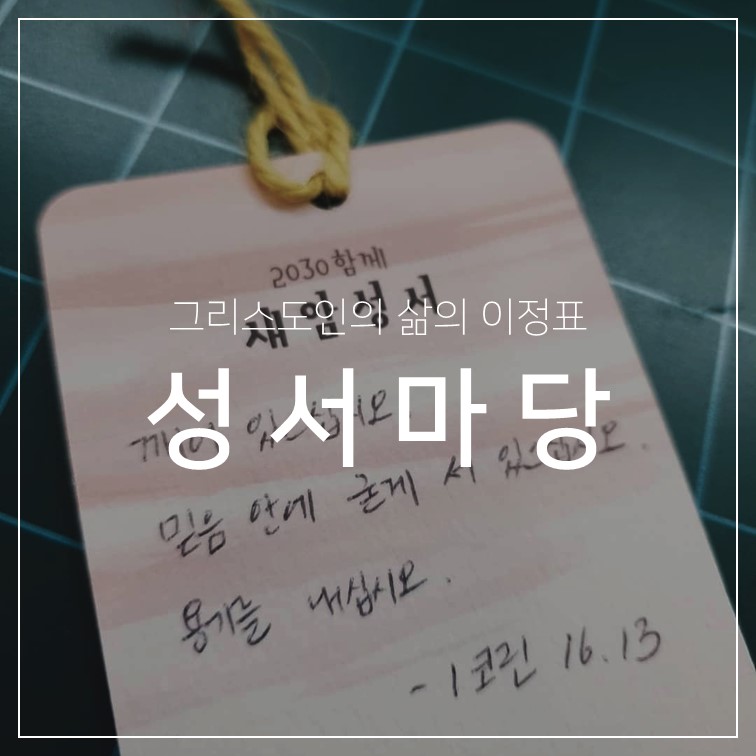 2030함께
새안성서
그리스도인의 삶의 이정표
성서마당
깨어 있으십시오.
믿음 안에 굳게 서 있으십시오.
용기를 내십시오.
- 1코린 16.13